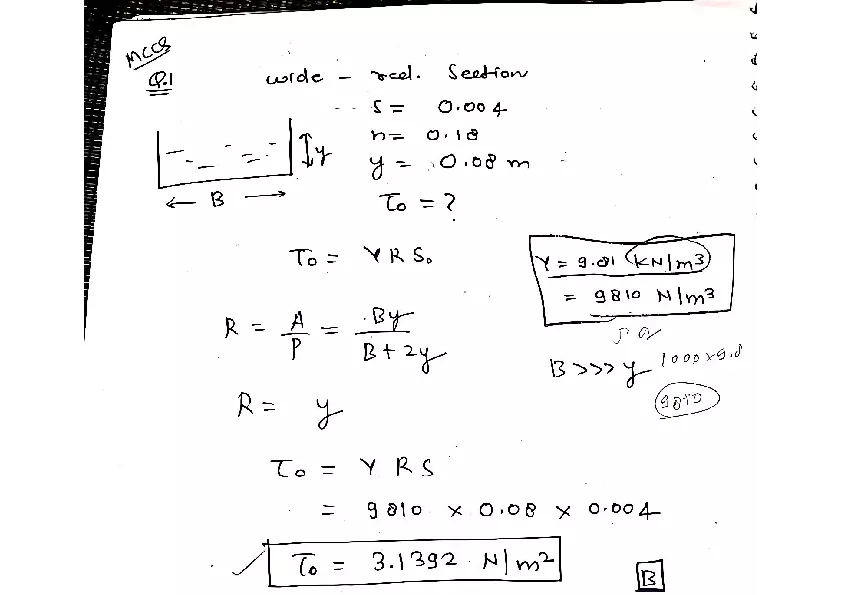 MCCS
Q.1
wide - rect. Section
S = 0.004
n = 0.18
y = 0.08 m
y
B
τ₀ = ?
τ₀ = γ R S₀
γ = 9.81 KN/m3
= 9810 N/m3
R = A/P = By/B + 2y
B >>> y
1000 x 9.8
9810
R = y
τ₀ = γ R S
= 9810 x 0.08 x 0.004
τ₀ = 3.1392 N/m2
B